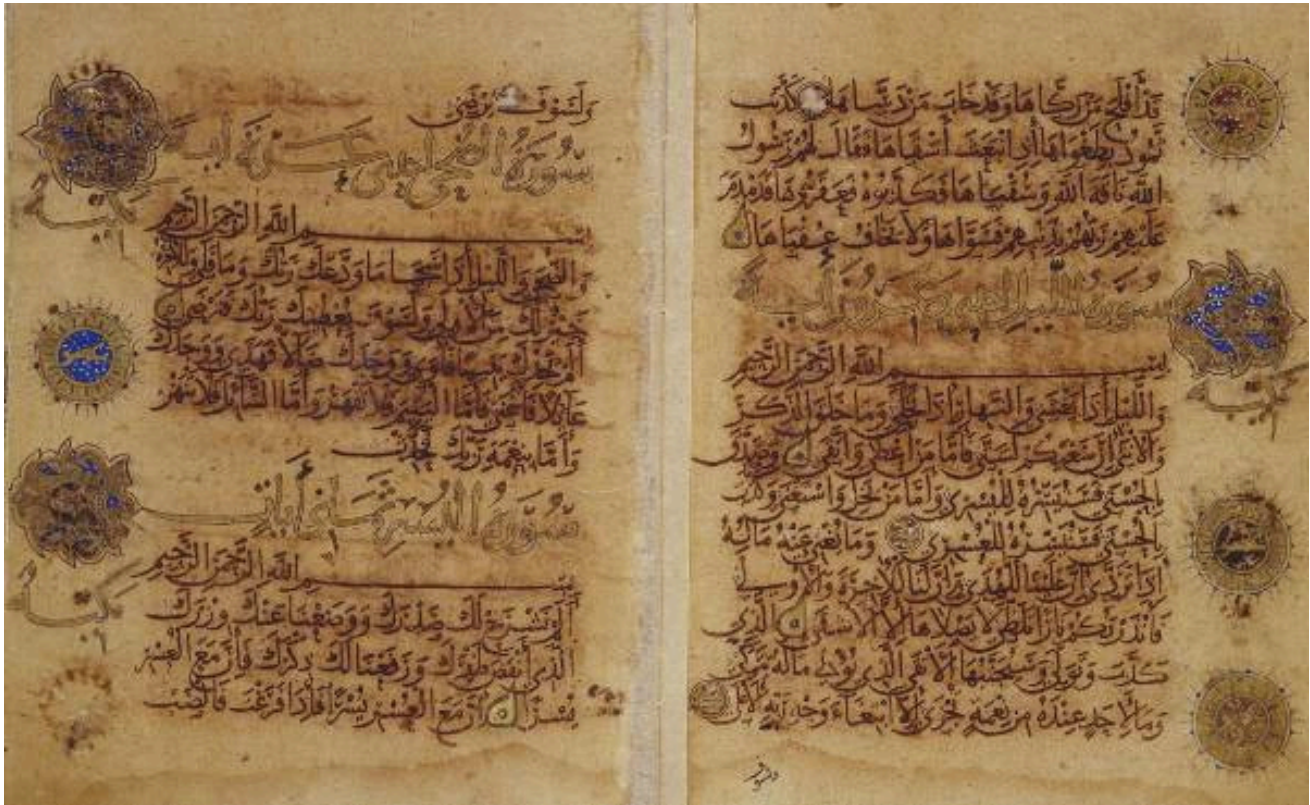 قد أفلح من زكاها وقد خاب من دساها كذبت
ثمود بطغواها إذ انبعث أشقاها فقال لهم رسول
الله ناقة الله وسقياها فكذبوه فعقروها فدمدم
عليهم ربهم بذنبهم فسواها ولا يخاف عقباها
سورة الليل وعشرون آية
مكية
بسم الله الرحمن الرحيم
والليل إذا يغشى والنهار إذا تجلى وما خلق الذكر
والأنثى إن سعيكم لشتى فأما من أعطى واتقى وصدق
بالحسنى فسنيسره لليسرى وأما من بخل واستغنى وكذب
بالحسنى فسنيسره للعسرى وما يغني عنه ماله
إذا تردى إن علينا للهدى وإن لنا للآخرة والأولى
فأنذرتكم نارا تلظى لا يصلاها إلا الأشقى الذي
كذب وتولى وسيجنبها الأتقى الذي يؤتي ماله يتزكى
وما لأحد عنده من نعمة تجزى إلا ابتغاء وجه ربه الأعلى
ولسوف يرضى
سورة الضحى إحدى عشرة آية
مكية
بسم الله الرحمن الرحيم
والضحى والليل إذا سجى ما ودعك ربك وما قلى وللآخرة
خير لك من الأولى ولسوف يعطيك ربك فترضى
ألم يجدك يتيما فآوى ووجدك ضالا فهدى ووجدك
عائلا فأغنى فأما اليتيم فلا تقهر وأما السائل فلا تنهر
وأما بنعمة ربك فحدث
سورة ثماني آيات
مكية
بسم الله الرحمن الرحيم
ألم نشرح لك صدرك ووضعنا عنك وزرك
الذي أنقض ظهرك ورفعنا لك ذكرك فإن مع العسر
يسرا إن مع العسر يسرا فإذا فرغت فانصب